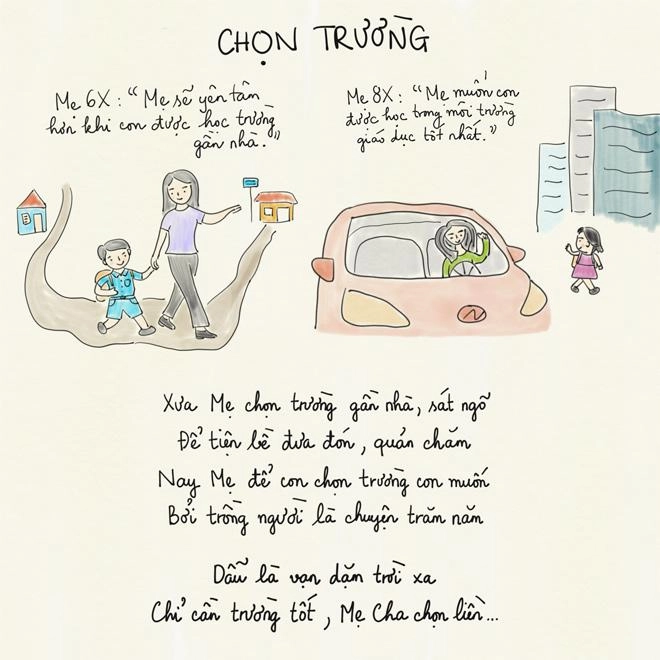 CHỌN TRƯỜNG
Mẹ 6X: "Mẹ sẽ yên tâm
hơn khi con được học trường
gần nhà."
Mẹ 8X: "Mẹ muốn con
được học trong môi trường
giáo dục tốt nhất."
N
Xưa Mẹ chọn trường gần nhà, sát ngõ
Để tiện bề đưa đón, quản chăm
Nay Mẹ để con chọn trường con muốn
Bởi trồng người là chuyện trăm năm
Dẫu là vạn dặm trời xa
Chỉ cần trường tốt, Mẹ Cha chọn liền...